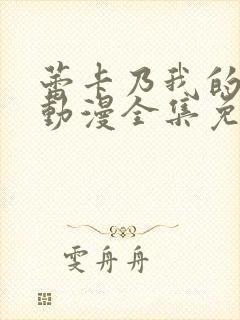 蕾卡乃我的
動漫全集免
雯舟舟